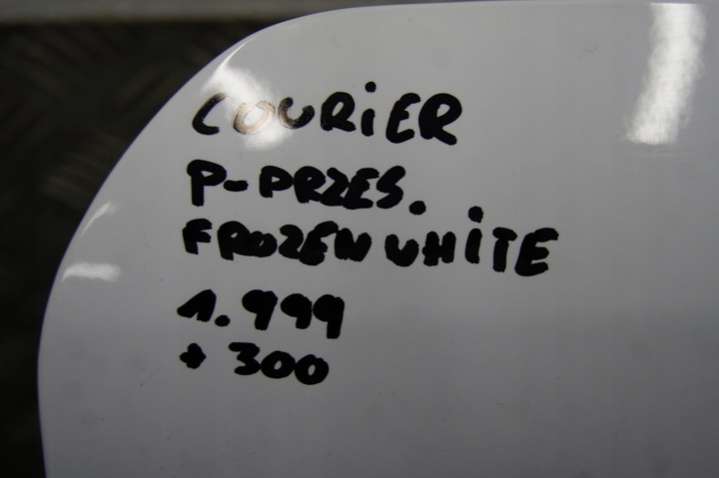 COURiER
P-PRZES.
FROZEN WHiTE
1.999
+ 300